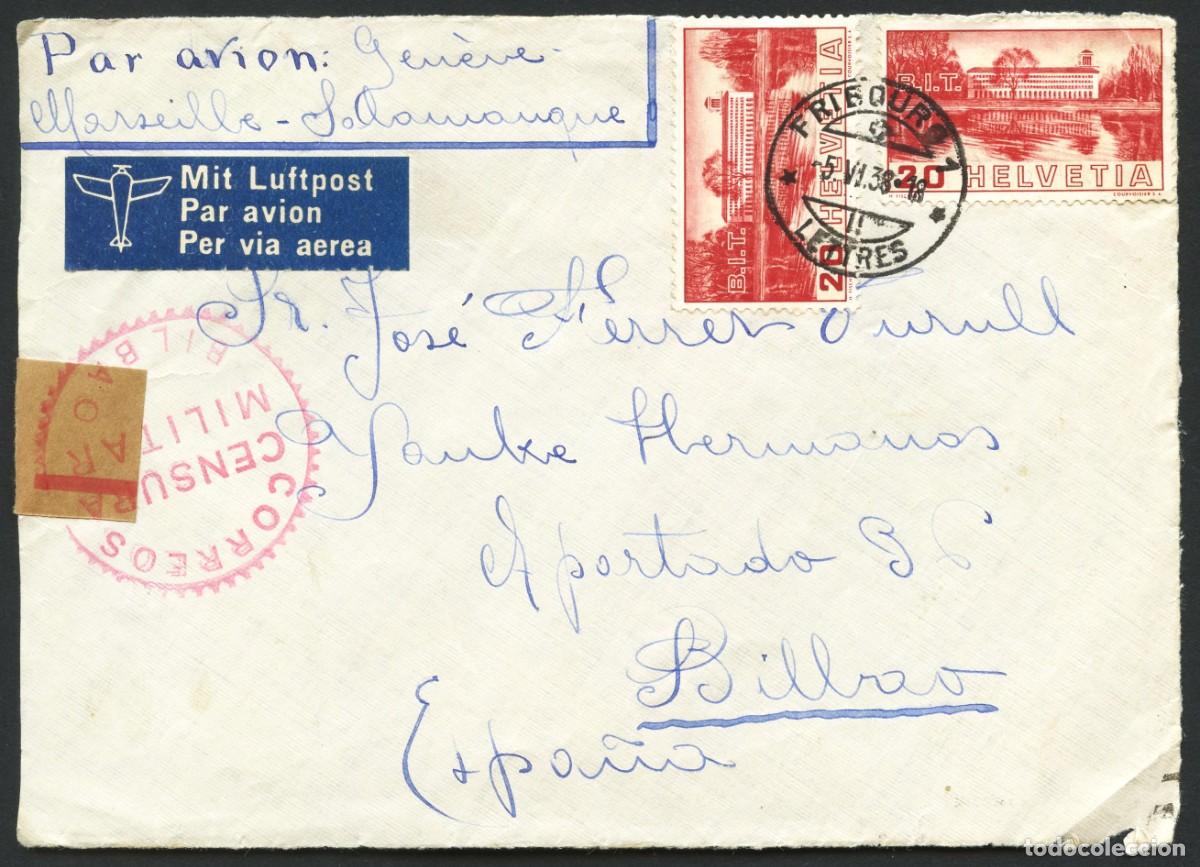 Par avion: Genève-
Marseille-Salamanque
Mit Luftpost
Par avion
Per via aerea
B.I.T.
20 HELVETIA
COURVOISIER S.A.
B.I.T.
20 HELVETIA
COURVOISIER S.A.
FRIBOURG 1
-5.VI.38-18
LETTRES
Sr. José Ferrer Turull
Yanke Hermanos
Apartado 96
Bilbao
España
CORREOS
CENSURA
MILITAR
BILBAO
todocoleccion